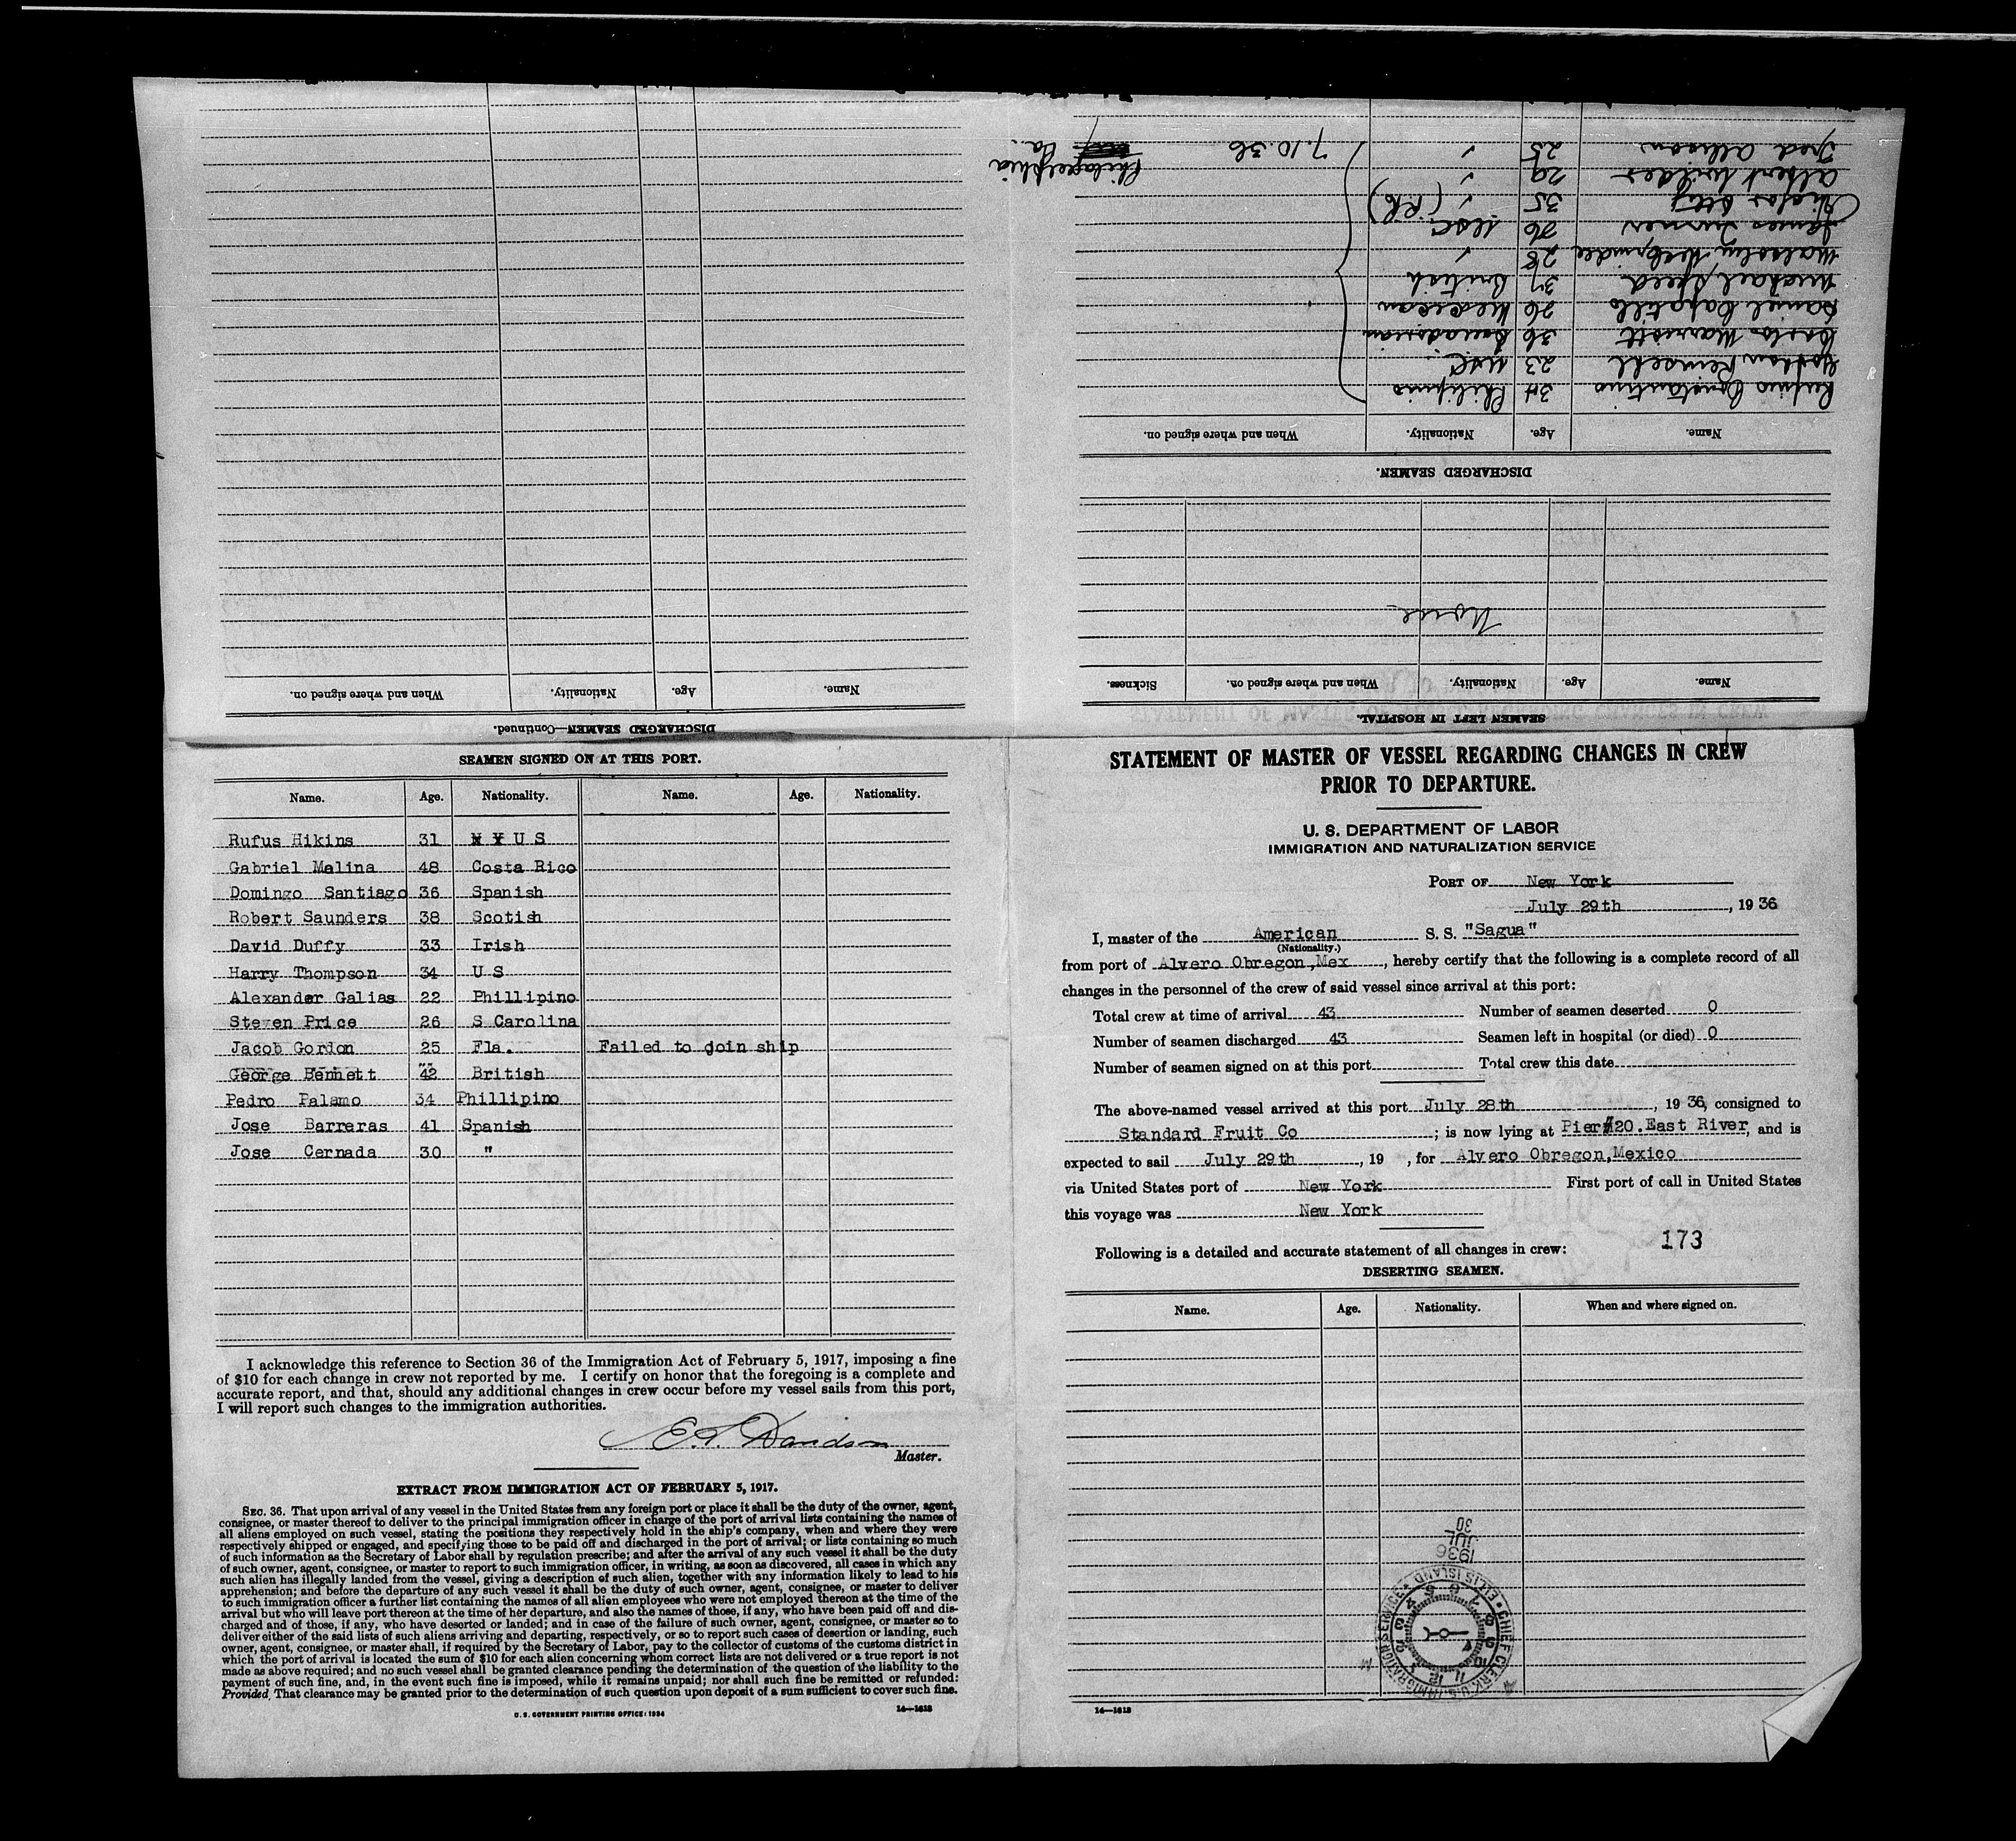 STATEMENT OF MASTER OF VESSEL REGARDING CHANGES IN CREW
PRIOR TO DEPARTURE.
U. S. DEPARTMENT OF LABOR
IMMIGRATION AND NATURALIZATION SERVICE
PORT OF New York
July 29th, 19 36
I, master of the American S. S. "Sagua"
(Nationality.)
from port of Alvero Obregon,Mex, hereby certify that the following is a complete record of all
changes in the personnel of the crew of said vessel since arrival at this port:
Total crew at time of arrival 43 Number of seamen deserted 0
Number of seamen discharged 43 Seamen left in hospital (or died) 0
Number of seamen signed on at this port Total crew this date
The above-named vessel arrived at this port July 28th, 19 36, consigned to
Standard Fruit Co; is now lying at Pier#20.East River, and is
expected to sail July 29th, 19 , for Alvero Obregon,Mexico
via United States port of New York First port of call in United States
this voyage was New York
Following is a detailed and accurate statement of all changes in crew:
173
DESERTING SEAMEN.
Name. Age. Nationality. When and where signed on.
CHIEF CLERK U.S. IMMIGRATION SERVICE ELLIS ISLAND
1936
JUL
30
14—1613
SEAMEN LEFT IN HOSPITAL.
Name. Age. Nationality. When and where signed on. Sickness.
None
DISCHARGED SEAMEN.
Name. Age. Nationality. When and where signed on.
Rufino Constantino 34 Philipino
23 USC
36
Daniel 26 Mexican
Michael Speed 37 British
28 "
James Turner 26 USC
35 " (P.R.)
Albert Wilder 29 "
Fred Allison 25 " 7.10.36 Philadelphia
Pa.
DISCHARGED SEAMEN—Continued.
Name. Age. Nationality. When and where signed on.
SEAMEN SIGNED ON AT THIS PORT.
Name. Age. Nationality. Name. Age. Nationality.
Rufus Hikins 31 N Y U S
Gabriel Malina 48 Costa Rico
Domingo Santiago 36 Spanish
Robert Saunders 38 Scotish
David Duffy 33 Irish
Harry Thompson 34 U S
Alexander Galias 22 Phillipino
Steven Price 26 S Carolina
Jacob Gordon 25 Fla. Failed to join ship
George Bennett 42 British
Pedro Palamo 34 Phillipino
Jose Barreras 41 Spanish
Jose Cernada 30 "
I acknowledge this reference to Section 36 of the Immigration Act of February 5, 1917, imposing a fine
of $10 for each change in crew not reported by me. I certify on honor that the foregoing is a complete and
accurate report, and that, should any additional changes in crew occur before my vessel sails from this port,
I will report such changes to the immigration authorities.
E. Davidson
Master.
EXTRACT FROM IMMIGRATION ACT OF FEBRUARY 5, 1917.
SEC. 36. That upon arrival of any vessel in the United States from any foreign port or place it shall be the duty of the owner, agent,
consignee, or master thereof to deliver to the principal immigration officer in charge of the port of arrival lists containing the names of
all aliens employed on such vessel, stating the positions they respectively hold in the ship's company, when and where they were
respectively shipped or engaged, and specifying those to be paid off and discharged in the port of arrival; or lists containing so much
of such information as the Secretary of Labor shall by regulation prescribe; and after the arrival of any such vessel it shall be the duty
of such owner, agent, consignee, or master to report to such immigration officer, in writing, as soon as discovered, all cases in which any
such alien has illegally landed from the vessel, giving a description of such alien, together with any information likely to lead to his
apprehension; and before the departure of any such vessel it shall be the duty of such owner, agent, consignee, or master to deliver
to such immigration officer a further list containing the names of all alien employees who were not employed thereon at the time of the
arrival but who will leave port thereon at the time of her departure, and also the names of those, if any, who have been paid off and dis-
charged and of those, if any, who have deserted or landed; and in case of the failure of such owner, agent, consignee, or master so to
deliver either of the said lists of such aliens arriving and departing, respectively, or so to report such cases of desertion or landing, such
owner, agent, consignee, or master shall, if required by the Secretary of Labor, pay to the collector of customs of the customs district in
which the port of arrival is located the sum of $10 for each alien concerning whom correct lists are not delivered or a true report is not
made as above required; and no such vessel shall be granted clearance pending the determination of the question of the liability to the
payment of such fine, and, in the event such fine is imposed, while it remains unpaid; nor shall such fine be remitted or refunded:
Provided, That clearance may be granted prior to the determination of such question upon deposit of a sum sufficient to cover such fine.
U. S. GOVERNMENT PRINTING OFFICE: 1934 14—1613